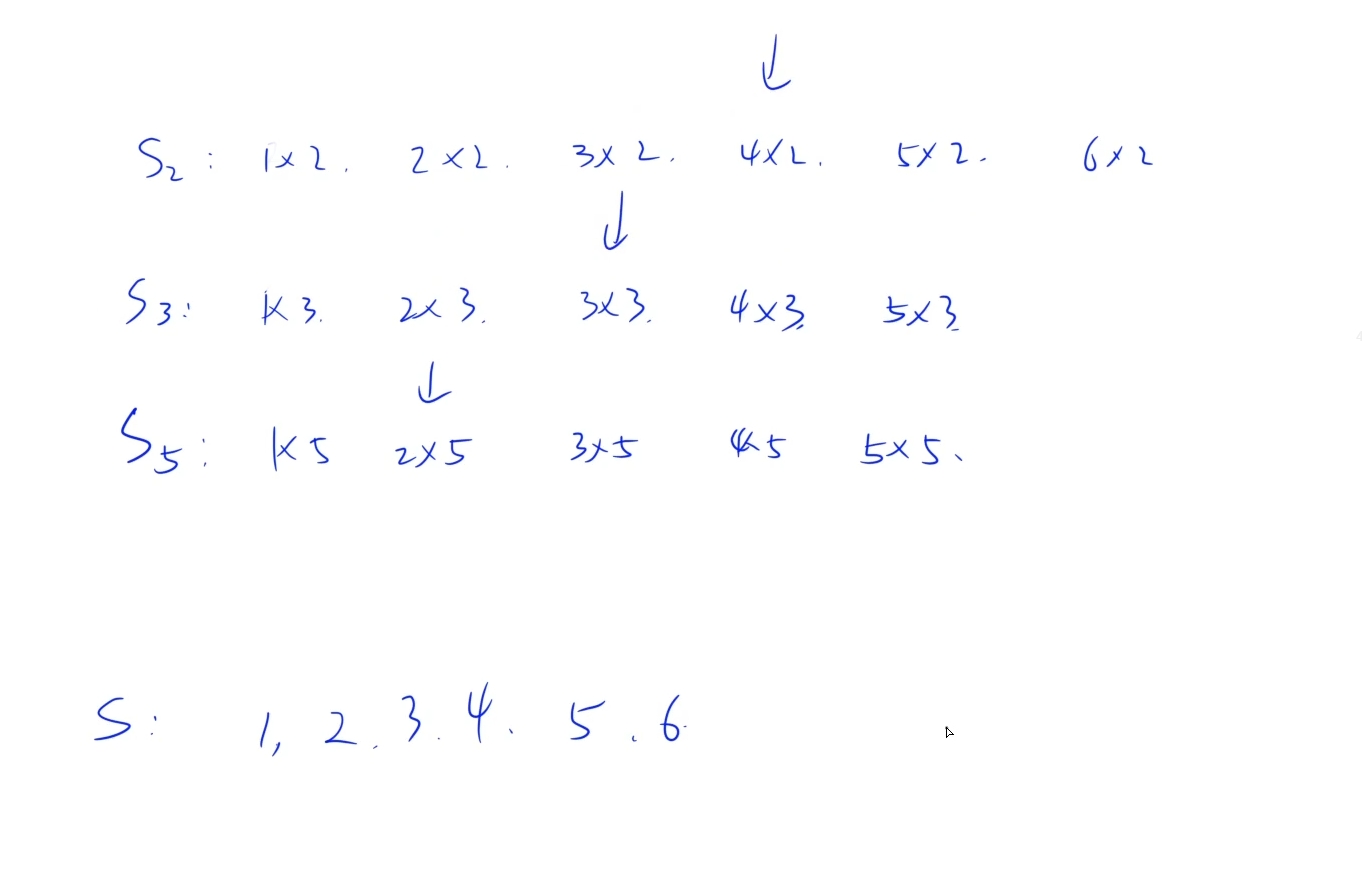 ↓
S₂: 1×2. 2×2. 3×2. 4×2. 5×2. 6×2
↓
S₃: 1×3. 2×3. 3×3. 4×3. 5×3.
↓
S₅: 1×5 2×5 3×5 4×5 5×5、
S: 1, 2. 3. 4. 5. 6.